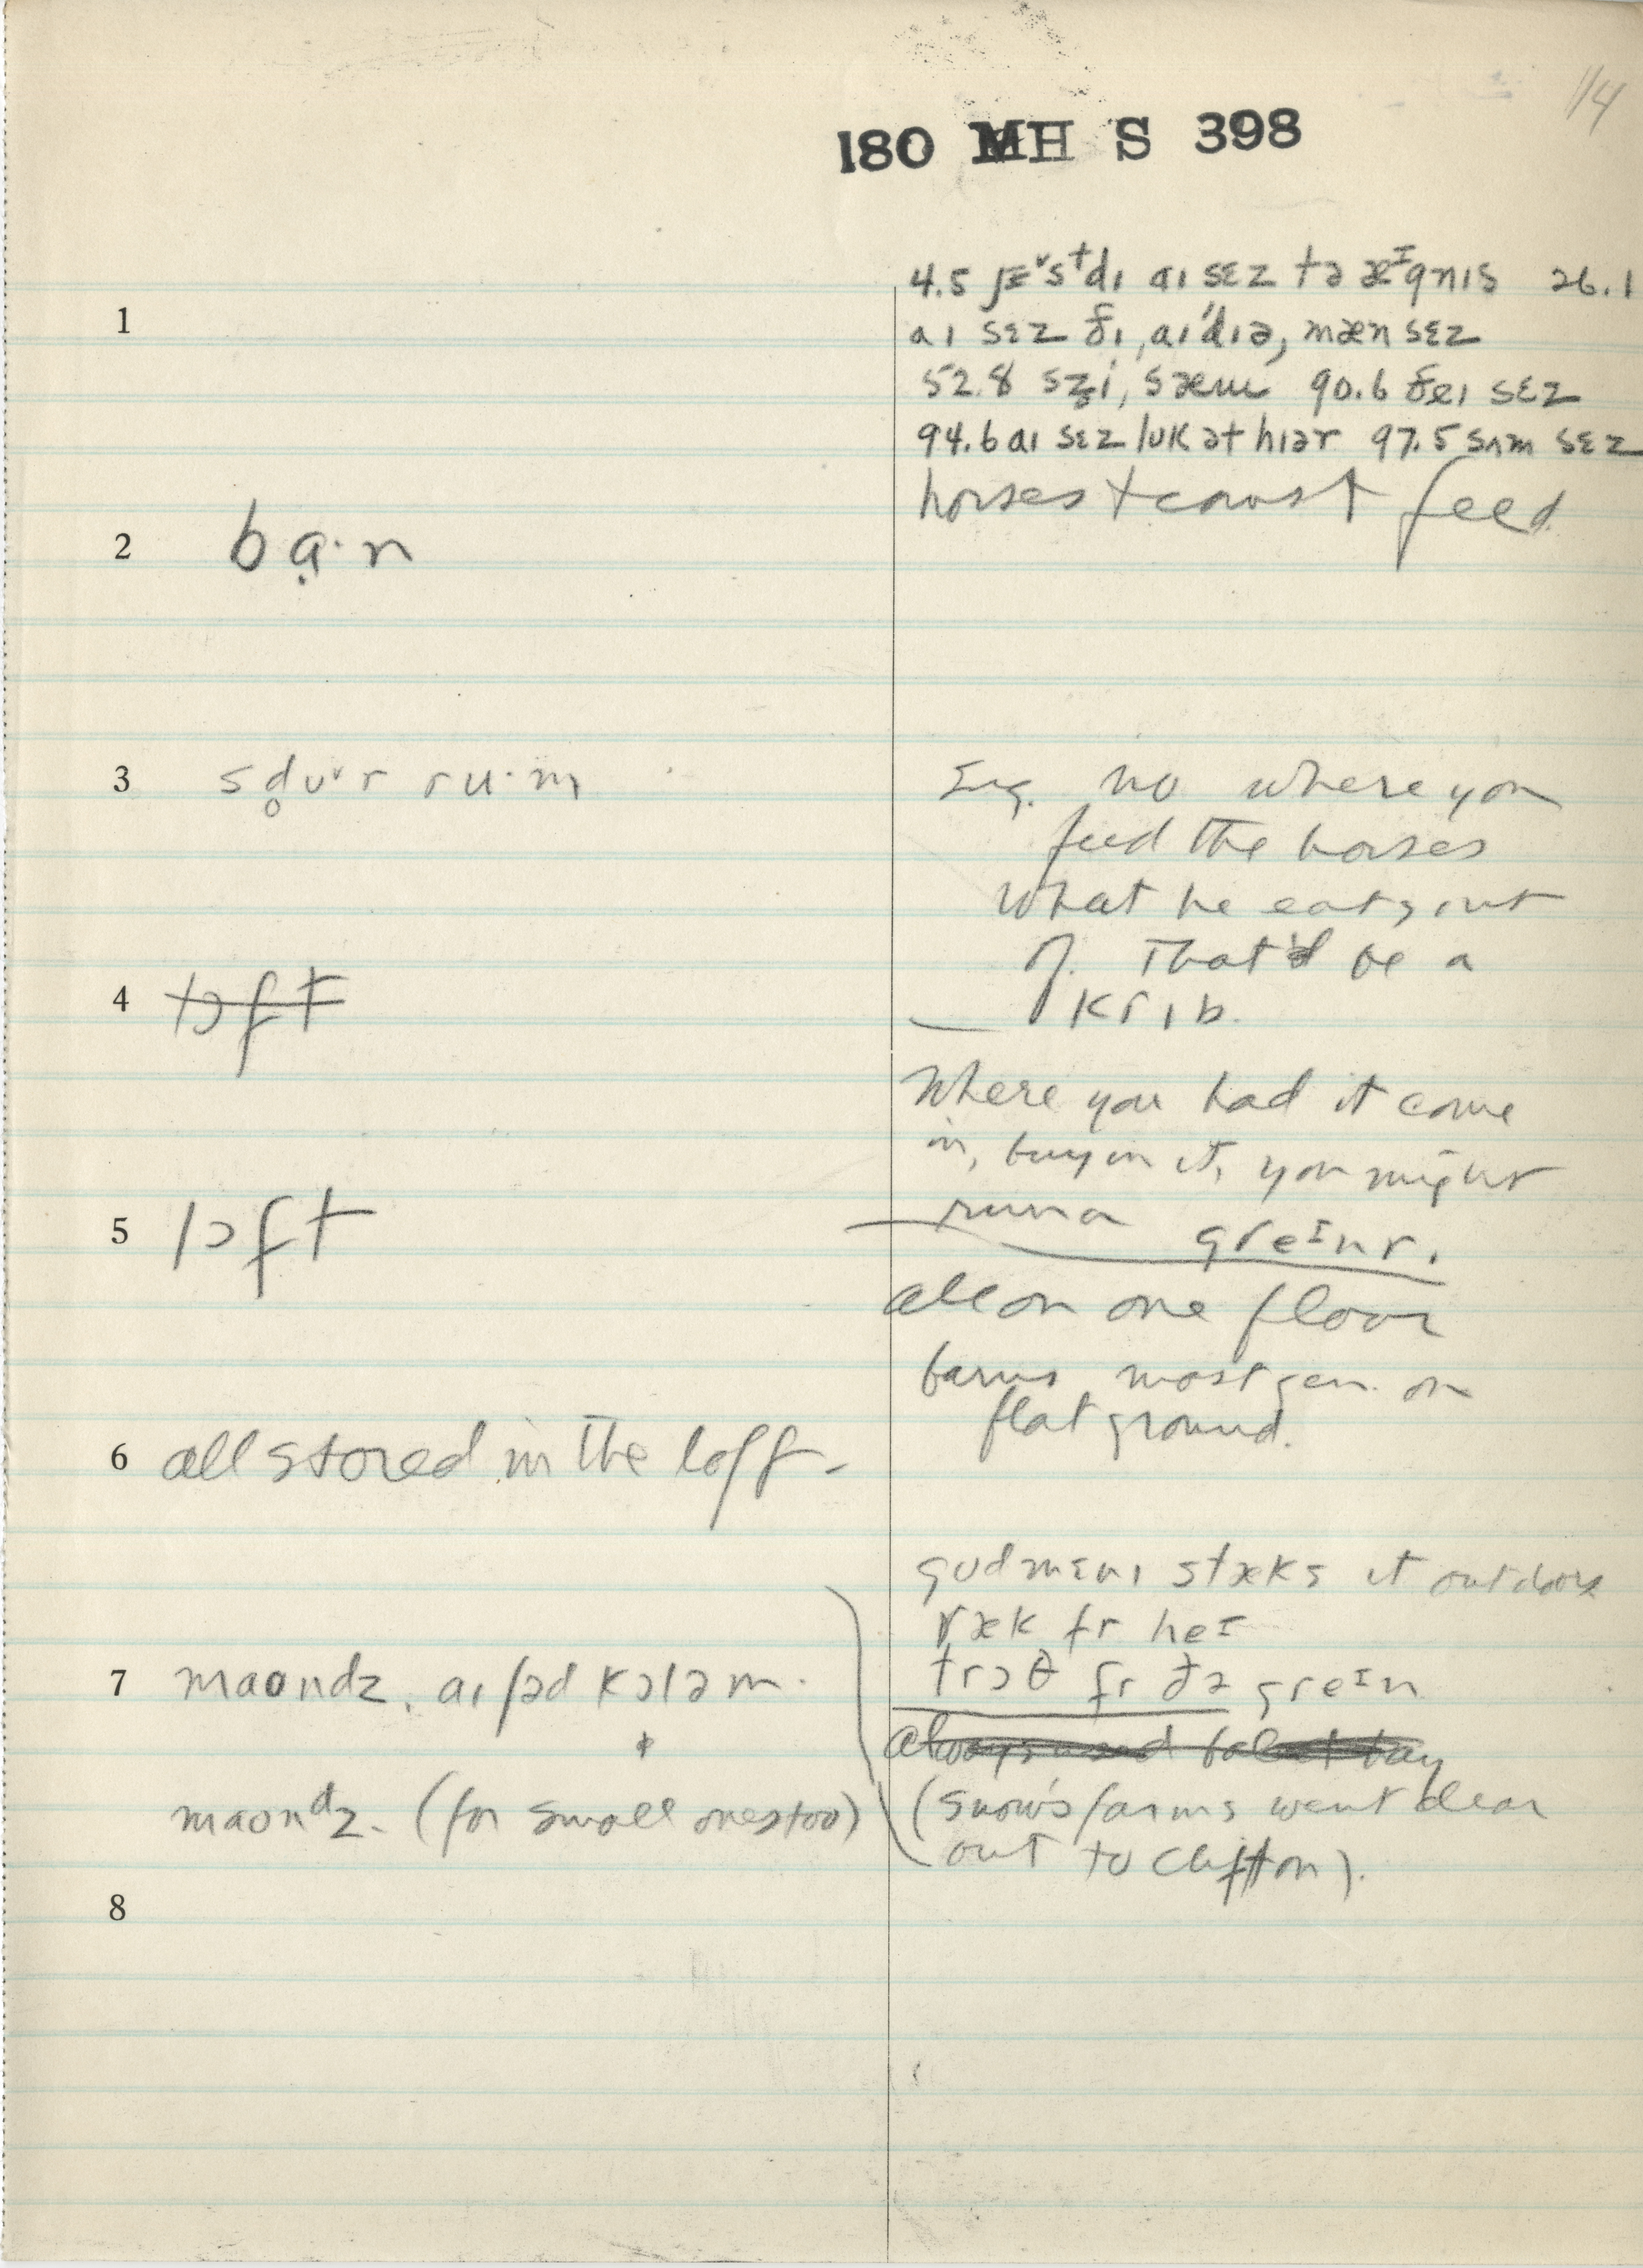 14
180 MH S 398
4.5 jɛ˅stdɪ aɪ sɛz tə æᶦgnɪs 26.1
1
aɪ sɛz ðɪ, aɪ'dɪə, mæn sɛz
52.8 sɛz̥i, sæm 90.6 ðeɪ sɛz
94.6 aɪ sɛz lʊk ət hɪər 97.5 sʌm sɛz
horses + cows ↑ feed
2 bạ·n
3 sd̥ʊ˅r ru·m
Sug. no where you
feed the horses
what he eats out
of. That'd be a
krɪb.
4 tɔft
Where you had it come
in, buyin it, you might
run a greᶦnr.
5 lɔft
all on one floor
barns most gen. on
flat ground.
6 all stored in the loft -
gʊdmɛnɪ stæks it outdoors
ræk fr heᶦ
7 maʊndz. aɪ ʃəd kɔləm.
trɔθ fr ðə greᶦn
always bay
maʊnᵈz. (for small ones too)
(Snow's farms went clear
out to Clifton).
8